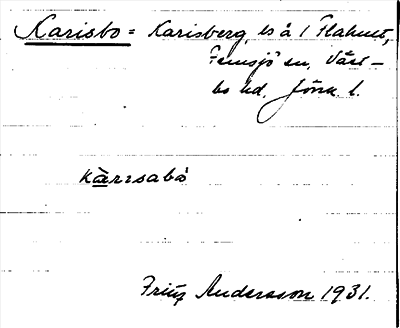 Karisbo = Karisberg, ls å 1 Flahult,
Femsjö sn, Väst-
bo hd. Jönk l.
kärrsabå
Fritz Andersson 1931.